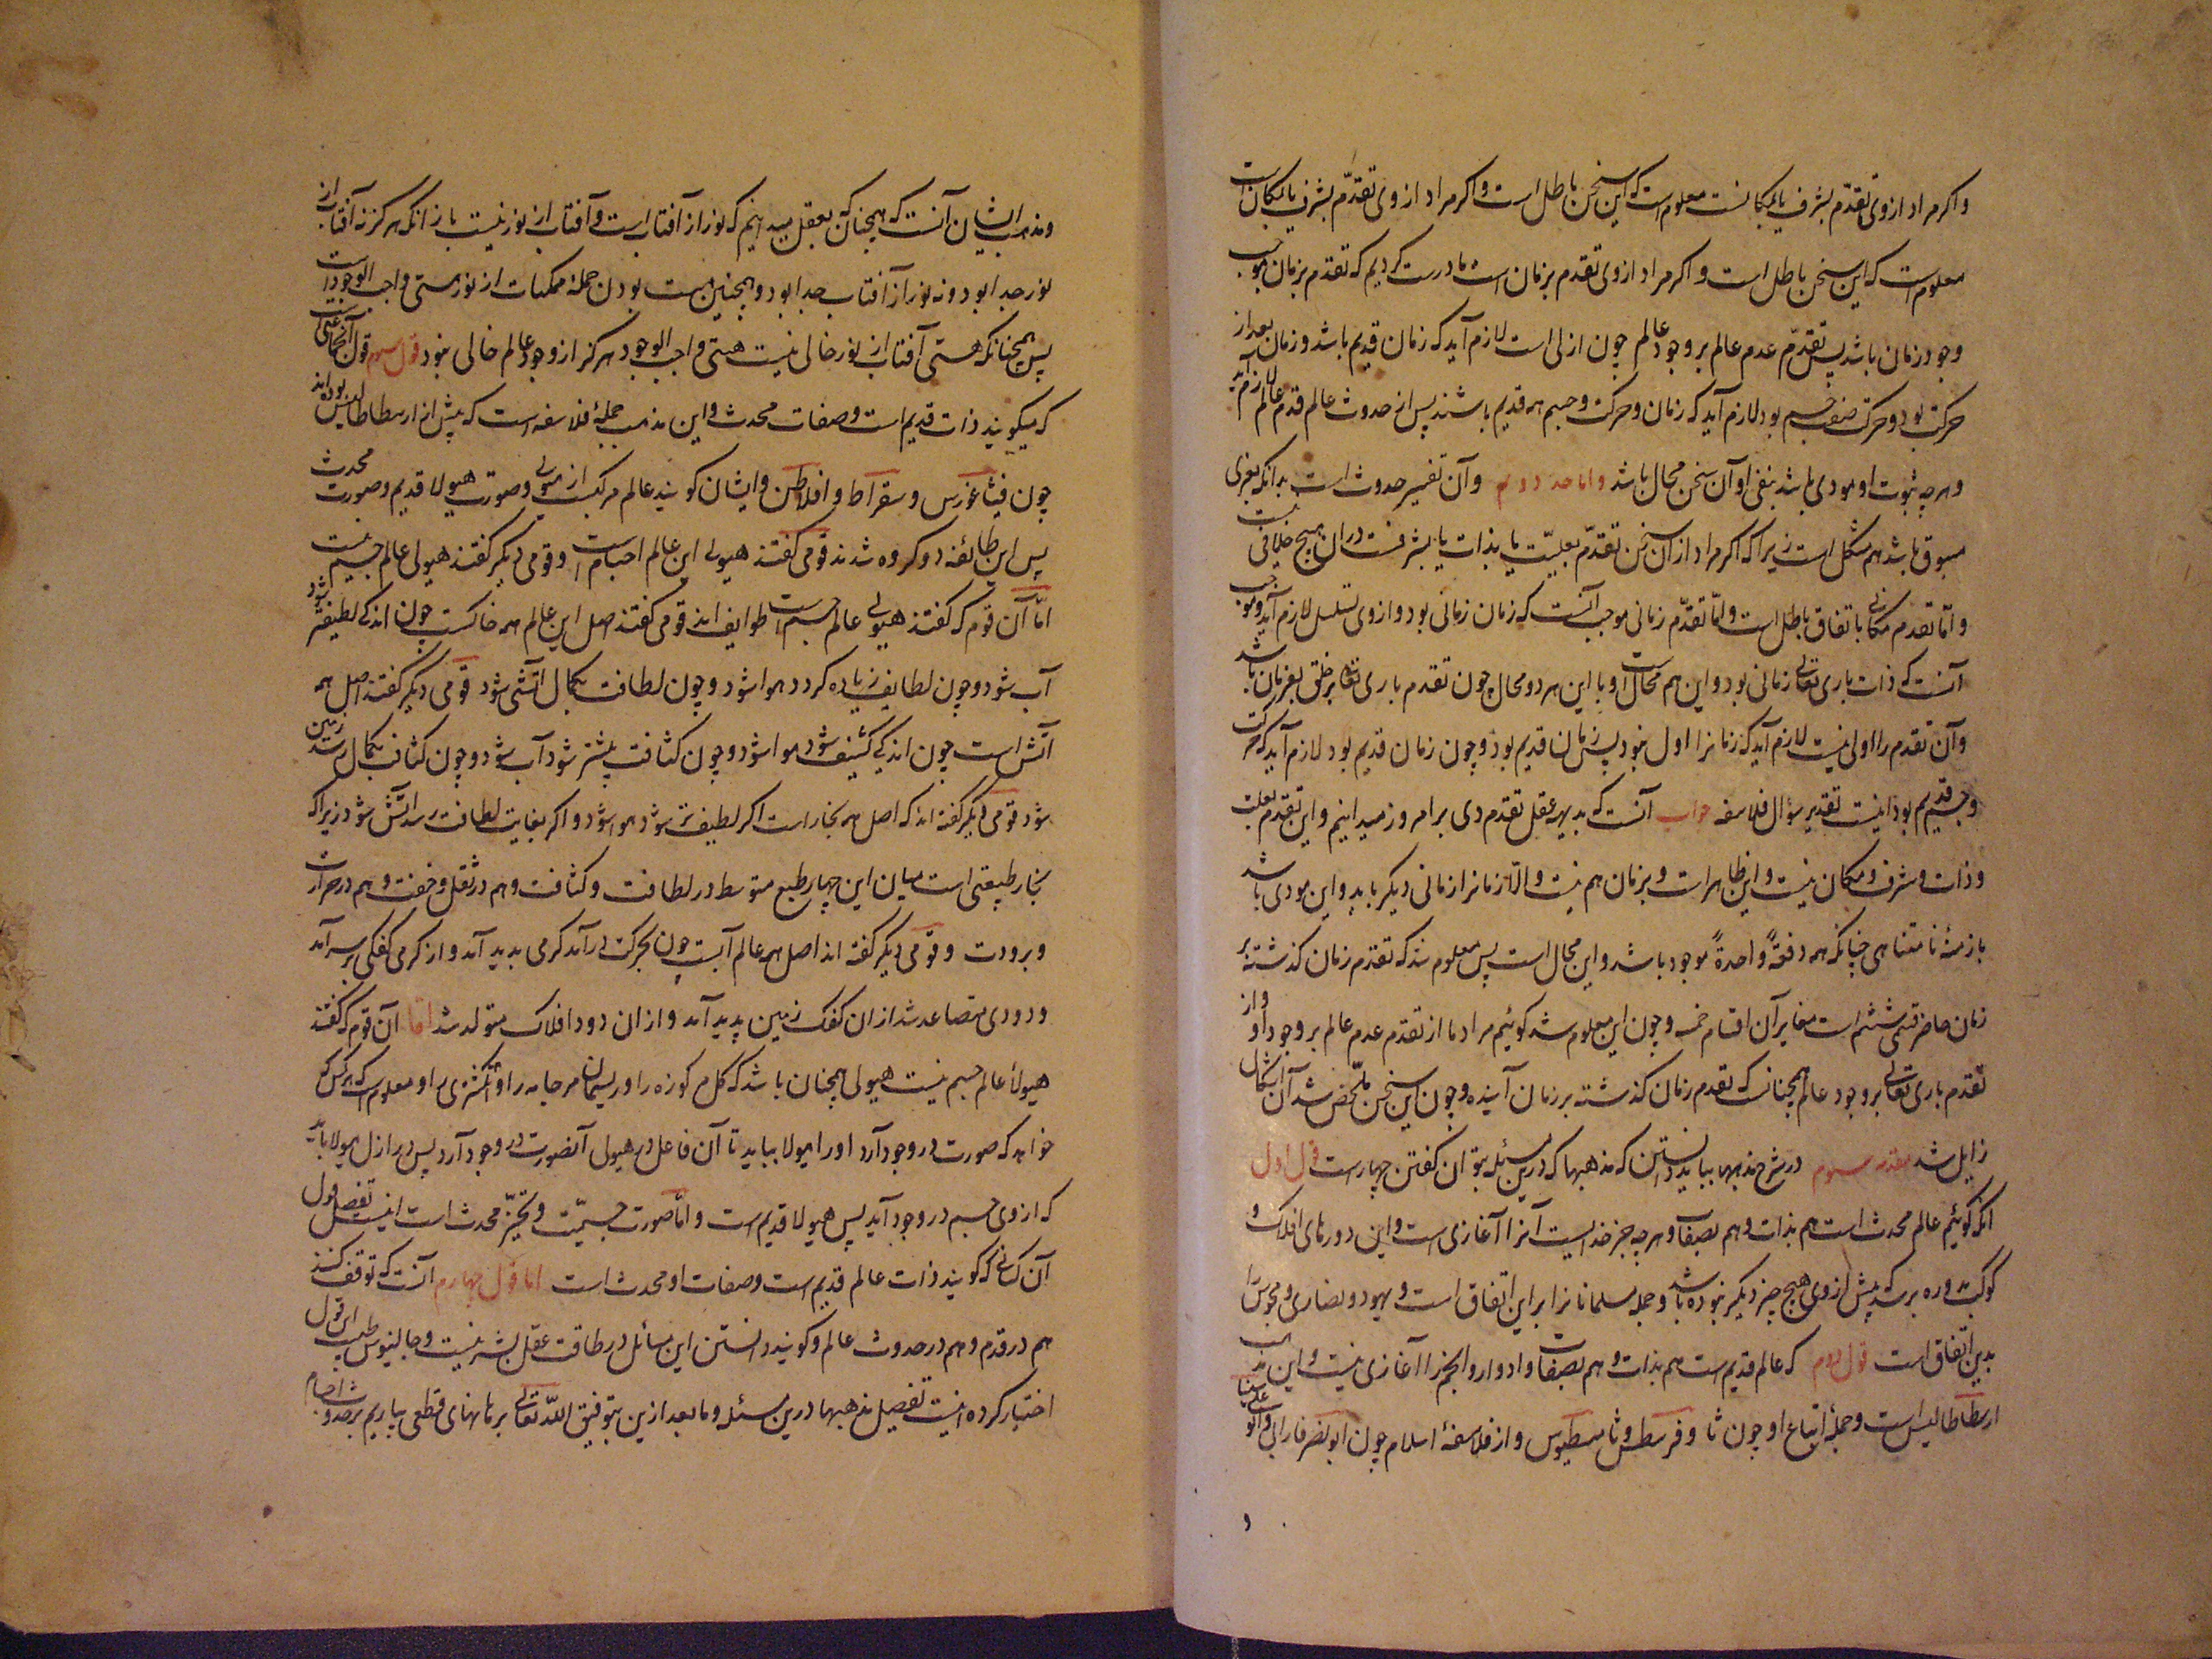 و اکر مراد ازوی تقدم بشرف یا بمکانست معلومست که این سخن باطل است و اکر مراد ازوی تقدّم بشرف یا بمکان است
معلوم است که این سخن باطل است و اکر مراد ازوی تقدم بزمان است ما درست کردیم که تقدم بزمان موجب
وجود زمان باشد پس تقدّم عدم عالم بر وجود عالم چون ازلی است لازم آید که زمان قدیم باشد و زمان بعد از
حرکت بود و حرکت صفت جسم بود لازم آید که زمان و حرکت و جسم همه قدیم باشند پس از حدوث عالم قدم عالم لازم آید
و هرچه ثبوت او مودی باشد بنفی او آن سخن محال باشد و اما حد دوم و آن تفسیر حدوث است بدانکه بغیری
مسبوق باشد هم مشکل است زیرا که اکر مراد از آن سخن تقدّم بعلیّت یا بذات یا بشرفست در آن هیچ خلافی نیست
و امّا تقدم مکانی باتفاق باطل است و امّا تقدّم زمانی موجب آنست که زمان زمانی بود و ازوی تسلسل لازم آید و موجب
آنست که ذات باری تعالی زمانی بود و این هم محال است و با این هر دو محال چون تقدم باری تعالی بر خلق بزمان باشد
و آن تقدم را اولی نیست لازم آید که زمانرا اول نبود پس زمان قدیم بود و چون زمان قدیم بود لازم آید که حرکت
و جسم قدیم بود اینست تقدیر سؤال فلاسفه جواب آنست که ببدیهه عقل تقدم دی بر امروز میدانیم و این تقدم بعلت
و ذات و شرف و مکان نیست و این ظاهر است و بزمان هم نیست والا زمانرا زمانی دیکر باید و این مودی باشد
بازمنهٔ نامتناهی چنانکه همه دفعةً واحدةً موجود باشد و این محال است پس معلوم شد که تقدم زمان کذشته بر
زمان حاضر قسمی ششم است مغایر آن اقسام خمسه و چون این معلوم شد کوئیم مراد ما از تقدم عدم عالم بر وجود او و از
تقدم باری تعالی بر وجود عالم همچنانست که تقدم زمان کذشته بر زمان آینده و چون این سخن ملخّص شد آن اشکال
زایل شد مقدمه سیوم در شرح مذهبها بباید دانستن که مذهبها که درین مسئله بتوان کفتن چهارست قول اول
آنکه کوئیم عالم محدث است هم بذات و هم بصفات و هرچه جز خداییست آنرا آغازی است و این دورهای افلاک و
کواکب بدوره رسد که پیش ازوی هیچ چیز دیکر نبوده باشد و جمله مسلمانانرا برین اتفاق است و یهود و نصاری و مجوس را
بدین اتفاق است قول دوم که عالم قدیم است هم بذات و هم بصفات و ادوار و انجم را آغازی نیست و این مذهب
ارسطاطالیس است و جملهٔ اتباع او چون ثاوفرسطس و ثامسطیوس و از فلاسفهٔ اسلام چون ابو نصر فارابی و ابو علی سینا
و مذهب ایشان آنست که همچنانکه بعقل میدانیم که نور از آفتاب است و آفتاب از نور نیست باز آنکه هرکز نه آفتاب از
نور جدا بود و نه نور از آفتاب جدا بود و همچنین هست بودن جملهٔ ممکنات از نور هستی واجب الوجود است
پس همچنانکه هستی آفتاب از نور خالی نیست هستی واجب الوجود هرکز از وجود عالم خالی نبود قول سیوم قول آن جماعتی است
که میکویند ذات قدیم است و صفات محدث و این مذهب جملهٔ فلاسفه است که پیش از ارسطاطالیس بوده‌اند
چون فیثاغورس و سقراط و افلاطن و ایشان کویند عالم مرکب است از هیولی و صورت هیولا قدیم و صورت محدث
پس این طائفه دو کروه شدند قومی کفتند هیولی این عالم اجسام است و قومی دیکر کفتند هیولی عالم جسم نیست
امّا آن قوم که کفتند هیولی عالم جسم است طوایف‌اند قومی کفتند اصل این عالم همه خاکست چون اندکی لطیف‌تر شود
آب شود و چون لطایف زیاده کردد هوا شود و چون لطافت بکمال آتشی شود قومی دیکر کفتند اصل همه
آتش است چون اندکی کثیف شود هوا شود و چون کثافت بیشتر شود آب شود و چون کثافت بکمال رسد زمین
شود قومی دیکر کفته‌اند که اصل همه بخار است اکر لطیف‌تر شود هوا شود و اکر بغایت لطافت رسد آتش شود زیرا که
بخار طبیعتی است میان این چهار طبع متوسط در لطافت و کثافت و هم در ثقل و خفت و هم در حرارت
و برودت و قومی دیکر کفته‌اند اصل همه عالم آبست چون بحرکت درآمد کرمی بدید آمد و از کرمی کفکی بر سر آمد
و دودی متصاعد شد از آن کفک زمین پدید آمد و از آن دود افلاک متولد شد اما آن قوم که کفتند
هیولاء عالم جسم نیست هیولی همچنان باشد که کل مر کوزه را و ریسمان مر جامه را و انکشتری را و معلوم است که هر کس که
خواهد که صورت در وجود آرد او را هیولا بباید تا آن فاعل در هیولی آنصورت در وجود آرد پس در ازل هیولا باید
که ازوی جسم در وجود آید پس هیولا قدیم است و امّا صورت جسمیّت و تحیّز محدث است اینست تفصیل قول
آن کسانی که کویند ذات عالم قدیم است و صفات او محدث است اما قول چهارم آنست که توقف کنند
هم در قدم و هم در حدوث عالم و کویند دانستن این مسائل در طاقت عقل بشر نیست و جالینوس طبیب این قول
اختیار کرده اینست تفصیل مذهبها درین مسئله و ما بعد ازین بتوفیق الله تعالی برهانهای قطعی بیاریم بر حدوث اجسام